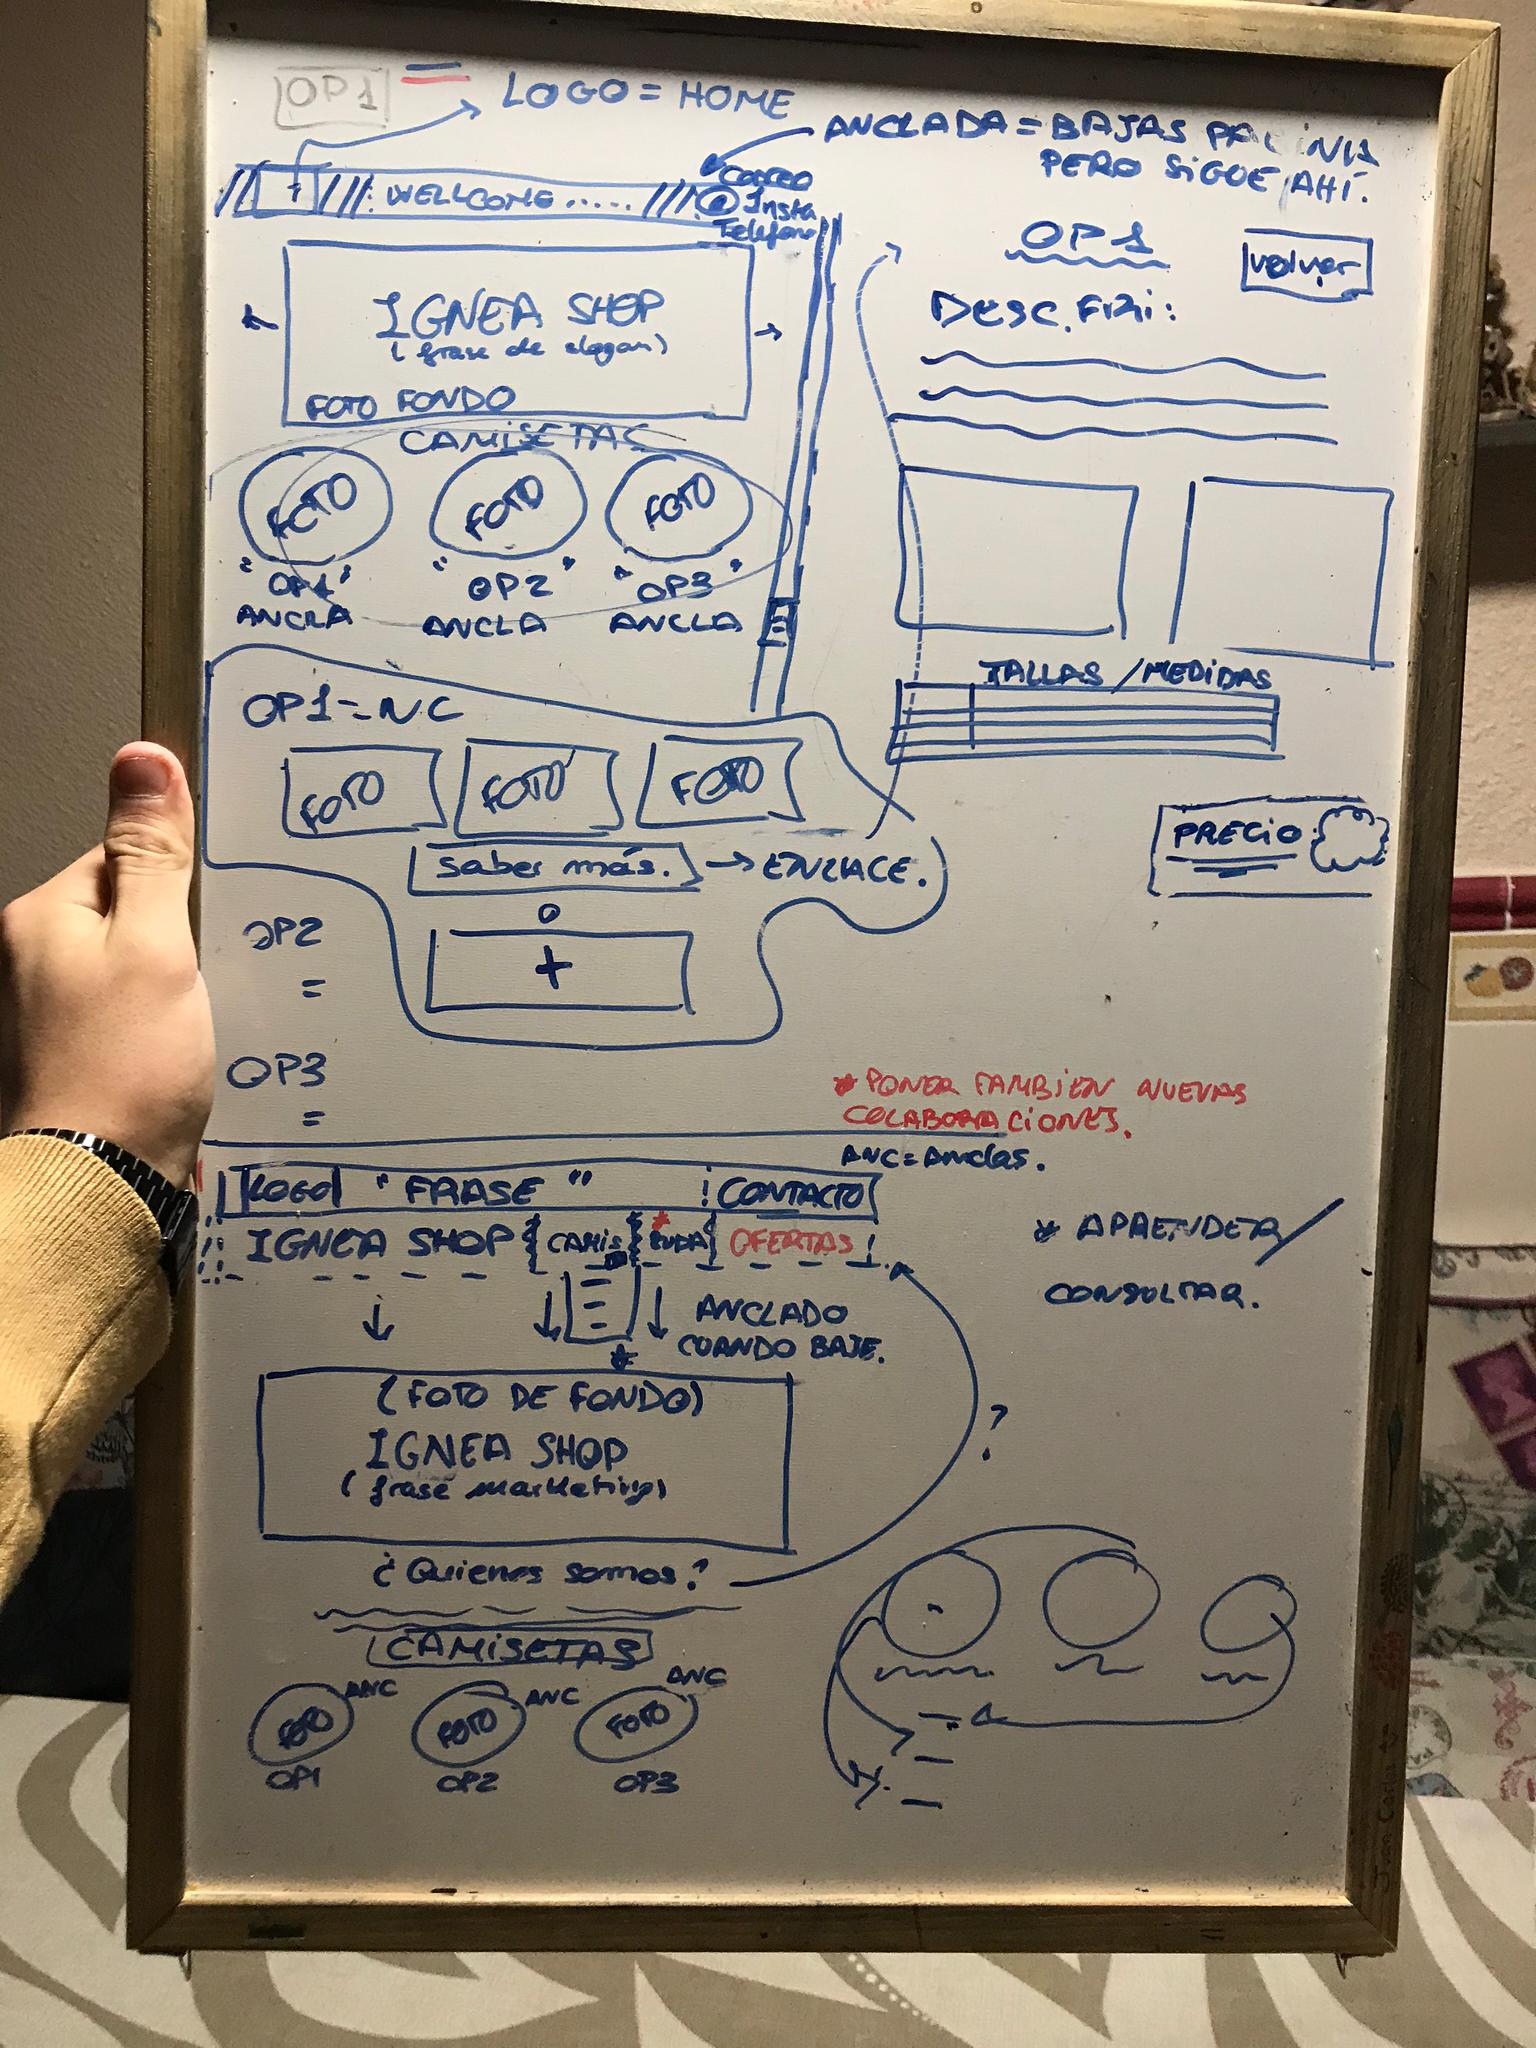 OP1
LOGO = HOME
ANCLADA = BAJAS PAGINA
PERO SIGUE AHÍ.
WELLCOME .....
CORREO
@ Insta
Telefono
IGNEA SHOP
(frase de slogan)
FOTO FONDO
CAMISETAS
FOTO FOTO FOTO
"OP1" "OP2" "OP3"
ANCLA ANCLA ANCLA
OP1 = NC
FOTO FOTO FOTO
Saber más. → ENLACE.
o
+
OP2
=
OP3
=
OP1
volver
DESC.
TALLAS / MEDIDAS
PRECIO
* PONER TAMBIEN NUEVAS
COLABORACIONES.
ANC = Anclas.
LOGO "FRASE" CONTACTO
IGNEA SHOP CAMIS OFERTAS
ANCLADO
CUANDO BAJE.
* APRENDER /
CONSULTAR.
(FOTO DE FONDO)
IGNEA SHOP
(frase marketing)
?
¿Quienes somos?
CAMISETAS
FOTO ANC FOTO ANC FOTO ANC
OP1 OP2 OP3